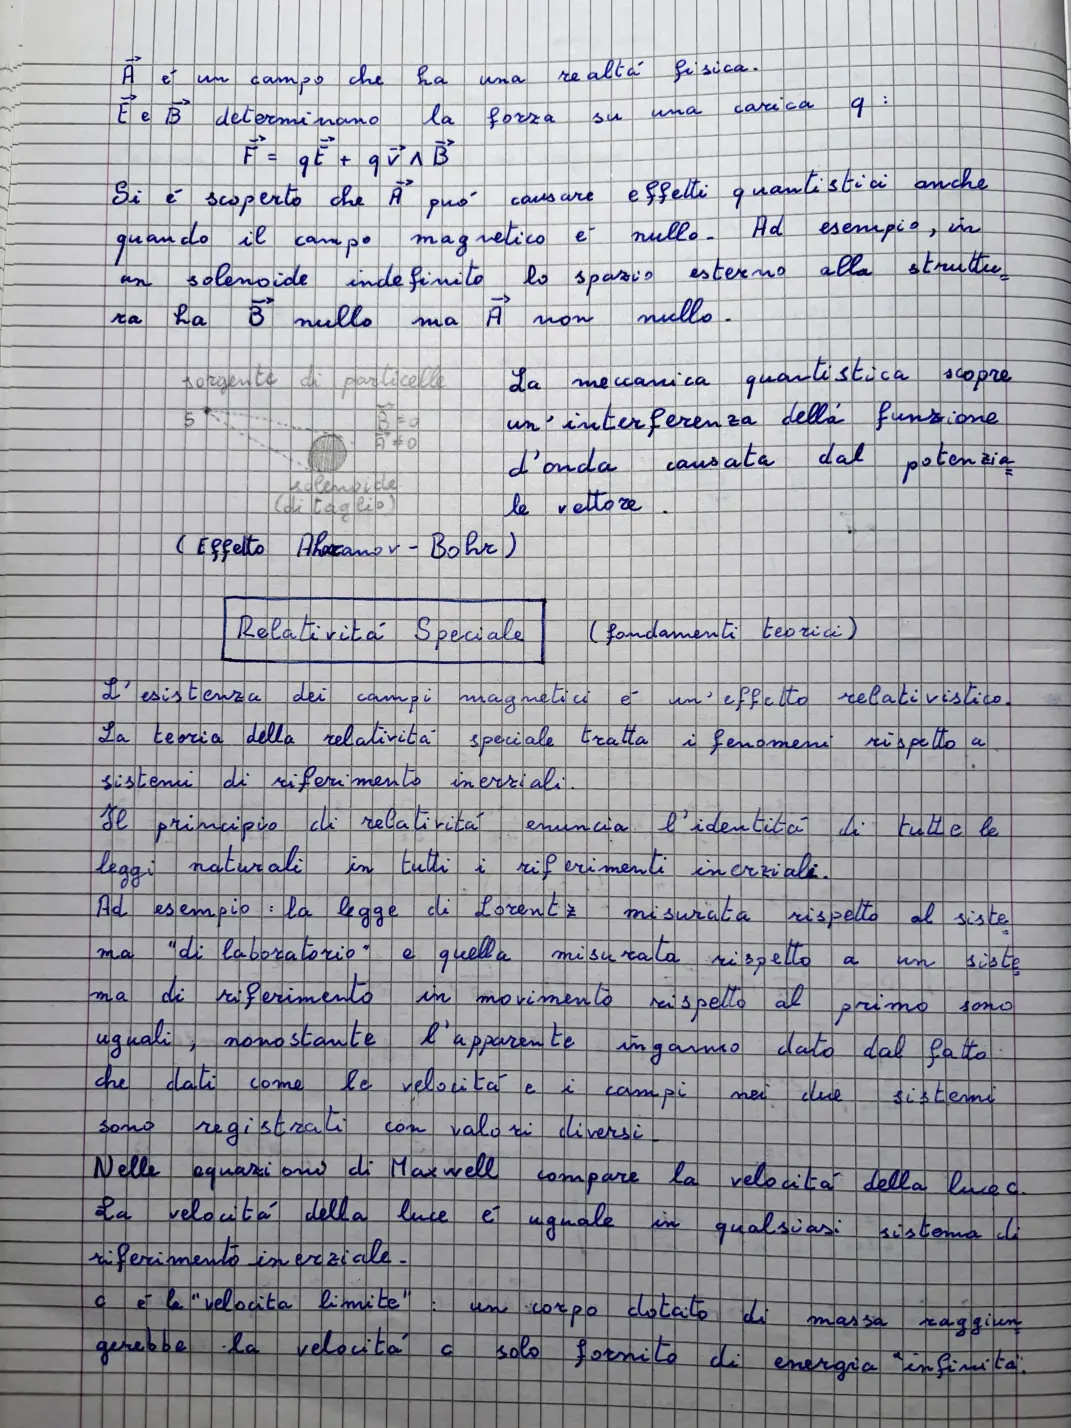 A⃗ é un campo che ha una realtá fisica.
E⃗ e B⃗ determinano la forza su una carica q :
F⃗ = qE⃗ + q v⃗ ∧ B⃗
Si é scoperto che A⃗ puó causare effetti quantistici anche
quando il campo magnetico é nullo. Ad esempio, in
un solenoide indefinito lo spazio esterno alla struttu=
ra ha B⃗ nullo ma A⃗ non nullo.
sorgente di particelle
S
B⃗ = 0
A⃗ ≠ 0
solenoide
(di taglio)
La meccanica quantistica scopre
un' interferenza dellá funzione
d'onda causata dal potenzia=
le vettore.
(Effetto Aharanov - Bohr)
Relativitá Speciale (fondamenti teorici)
L' esistenza dei campi magnetici é un' effetto relativistico.
La teoria della relativitá speciale tratta i fenomeni rispetto a
sistemi di riferimento inerziali.
Il principio di relativitá enuncia l'identitá di tutte le
leggi naturali in tutti i riferimenti inerziali.
Ad esempio : la legge di Lorentz misurata rispetto al siste=
ma "di laboratorio" e quella misurata rispetto a un siste=
ma di riferimento in movimento rispetto al primo sono
uguali, nonostante l'apparente inganno dato dal fatto
che dati come le velocitá e i campi nei due sistemi
sono registrati con valori diversi.
Nelle equazioni di Maxwell compare la velocitá della luce c.
La velocitá della luce é uguale in qualsiasi sistema di
riferimento inerziale.
c é la "velocita limite" : un corpo dotato di massa raggiun=
gerebbe la velocitá c solo fornito di energia "infinita".